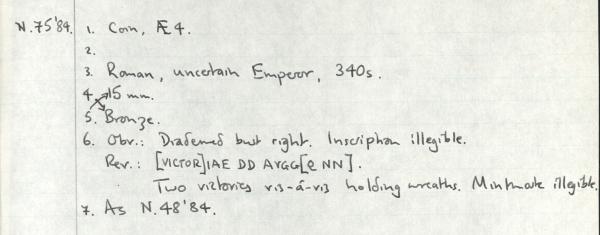 N.75'84. 1. Coin, Æ 4.
2.
3. Roman, uncertain Emperor, 340s.
4. 15 mm.
5. Bronze.
6. Obv.: Diademed bust right. Inscription illegible.
Rev.: [VICTOR]IAE DD AVGG[Q NN].
Two victories vis-á-vis holding wreaths. Mintmark illegible.
7. As N.48'84.